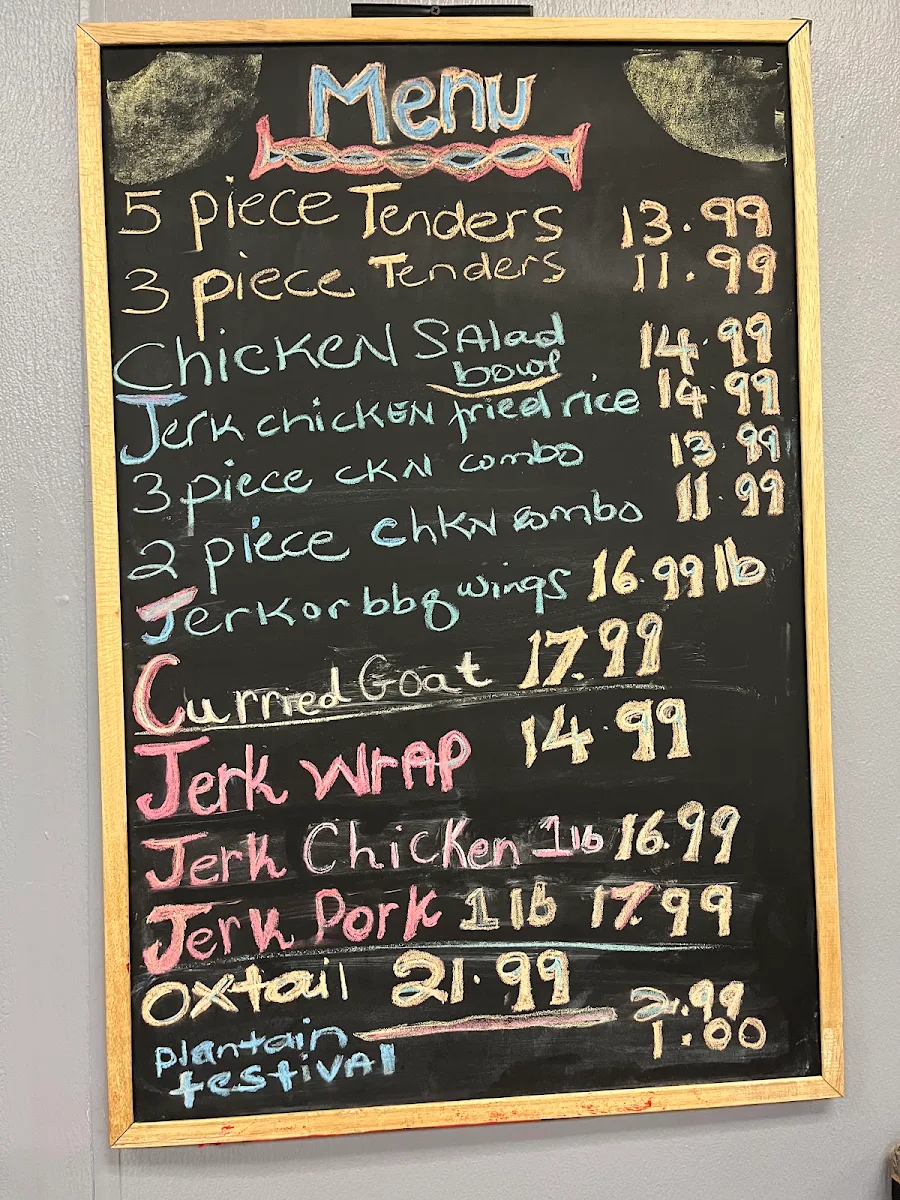 Menu
5 piece Tenders 13.99
3 piece Tenders 11.99
Chicken Salad 14.99
bowl
Jerk chicken fried rice 14.99
3 piece ckn combo 13.99
2 piece Chkn combo 11.99
Jerk or bbq wings 16.99 lb
Curried Goat 17.99
Jerk Wrap 14.99
Jerk Chicken 1 lb 16.99
Jerk Pork 1 lb 17.99
Oxtail 21.99
plantain 2.99
festival 1.00